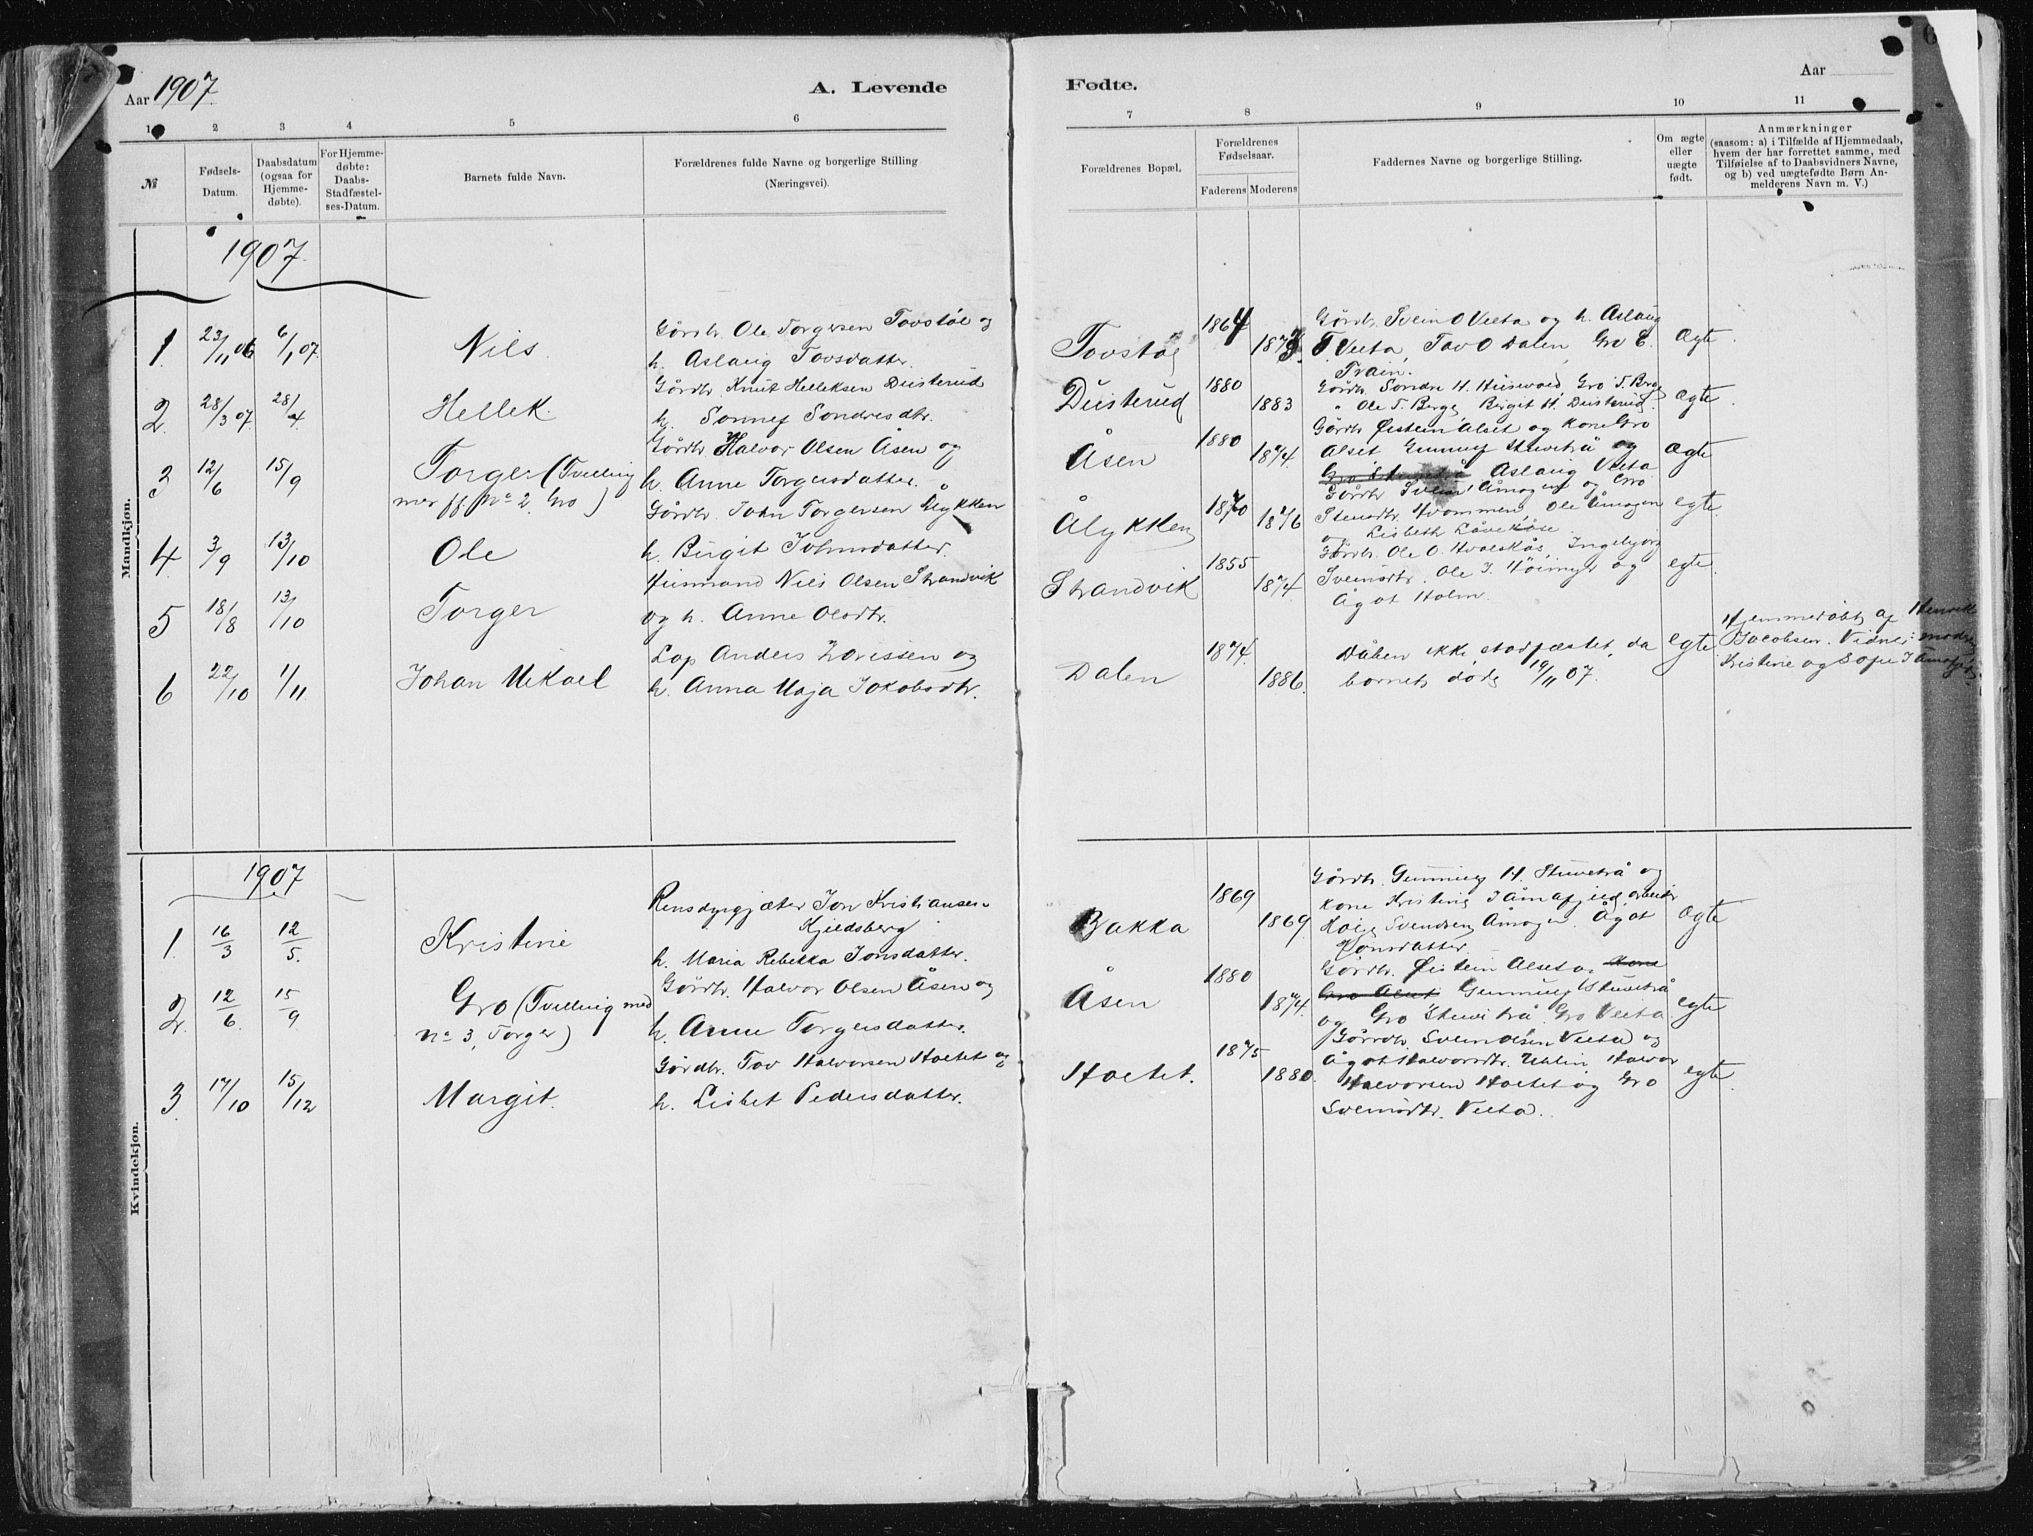 Aar 1907.
A. Levende
Fødte.
Aar
1 2 3 4 5 6 7 8 9 10 11
№
Fødsels-
Datum.
Daabsdatum
(ogsaa for
Hjemme-
døbte).
For Hjemme-
døbte:
Daabs-
Stadfæstel-
ses-Datum.
Barnets fulde Navn.
Forældrenes fulde Navne og borgerlige Stilling
(Næringsvei).
Forældrenes Bopæl,
Forældrenes
Fødselsaar.
Faderens Moderens
Faddernes Navne og borgerlige Stilling.
Om ægte
eller
uægte
født.
Anmærkninger
(saasom: a) i Tilfælde af Hjemmedaab,
hvem der har forrettet samme, med
Tilføielse af to Daabsvidners Navne,
og b) ved uægtefødte Børn An-
melderens Navn m. V.)
Mandkjøn.
1907.
1. 23/11 06 6/1 07. Nils.
Gårdbr. Ole Torgersen Tovstøl og
h. Aslaug Tovsdatter.
Tovstøl 1864
Gårdbr. Svein O Veeta og h. Aslaug
T. Veeta, Tov O Dalen, Gro E.
Træin.
ægte.
2. 28/3 07 28/4 Hellek.
Gårdbr. Knut Helleksen Duisterud
h. Sonnef Sondresdtr.
Duisterud 1880 1883
Gårdbr. Sondre H. Gro T. Berge
" Ole T. Berge Birgit H. Duisterud.
ægte.
3 12/6 15/9 Torger (Tvilling
med pf. No 2, Gro)
Gårdbr. Halvor Olsen Åsen og
h. Anne Torgersdatter.
Åsen 1880 1874.
Gårdbr Øistein Alset og kone Gro
Alset Gunnuf Stuvetrå og
Aslaug Veeta
ægte
4 3/9 13/10 Ole
Gårdbr. John Torgersen Ålykken
h. Birgit Johnsdatter.
Ålykken 1870 1876
Gårdbr Svein Åmogen og Gro
Steinsdtr. Kvammen, Ole Åmogen
og Lisbeth
egte.
5 18/8 13/10 Torger
Husmand Nils Olsen Strandvik
og h. Anne Olsdtr.
Strandvik 1855 1874.
Gårdbr. Ole O. Ingebjorg
Sveinsdtr. Ole J. Høimyr og
Ågot Holm.
egte.
6 22/10 1/11. Johan Mikael
Lap Anders Larissen og
h. Anna Maja Jakobsdtr.
Dalen 1874. 1886.
Dåben ikke stadfæstet, da
barnets døde 19/11 07.
egte
Hjemmedøbt af Henrik
Jacobsen. Vidner:
Kristine og Sofie
Kvindekjøn.
1907
1. 16/3 12/5. Kristine
Rensdyrgjæter Jon Kristiansen
Kjeldsberg
h. Maria Rebekka Jonsdatter.
Bakka 1869 1869
Gårdbr. Gunnuf H. Stuvetrå og
kone Kristine arbeider
Svendsen Åmogen. Ågot
Jonsdatter.
ægte
2. 12/6. 15/9. Gro (Tvilling med
No 3, Torger)
Gårdbr. Halvor Olsen Åsen og
h. Anne Torgersdatter.
Åsen 1880 1874.
Gårdbr. Øistein Alset og kone
Gro Alset Gunnuf Stuvetrå
og Gro Stuvetrå. Gro Veeta
egte
3. 17/10 15/12 Margit.
Gårdbr. Tov Halvorsen Hoetet og
h. Lisbet Pedersdatter.
Hoetet. 1875 1880.
Gårdbr. Svein Olsen Veeta og
Ågot Halvorsdtr. Halvor
Halvorsen Hoetet og Gro
Sveinsdtr. Veeta.
egte.